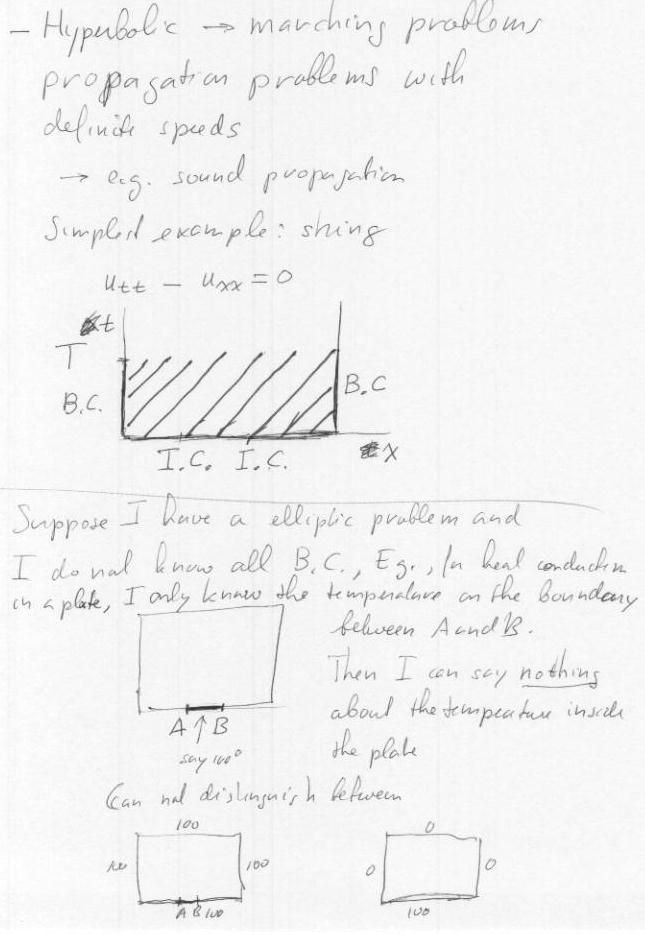 - Hyperbolic → marching problems
propagation problems with
definite speeds
→ e.g. sound propagation
Simplest example: string
u_tt - u_xx = 0
t
T
B.C.
B.C
I.C. I.C.
x
Suppose I have a elliptic problem and
I do not know all B.C., E.g., for heat conduction
in a plate, I only know the temperature on the boundary
between A and B.
Then I can say nothing
about the temperature inside
the plate
A ↑ B
say 100°
Can not distinguish between
100
100
A B 100
0
0
0
100